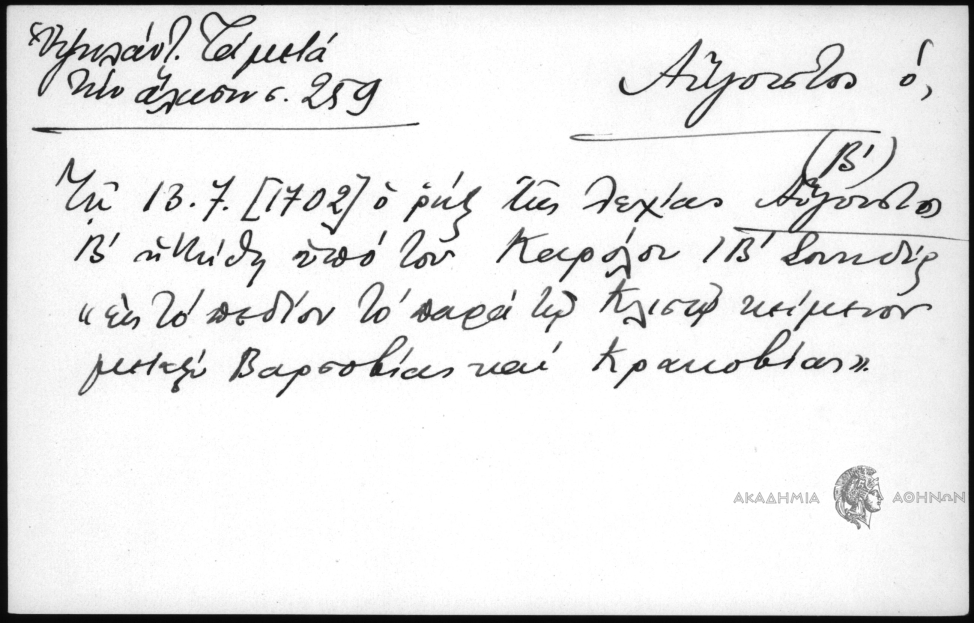 Ὑψηλάντ. Τά μετά
τήν ἅλωσιν σ. 259
Αὔγουστος ὁ,
(Β΄)
Τῇ 13.7.[1702] ὁ ρήξ τῆς Λεχίας Αὔγουστος
Β΄ ἡττήθη ὑπό τοῦ Καρόλου ΙΒ΄ Σουηδίας
«εἰς τό πεδίον τό παρά τῷ Κλισσῷ κείμενον
μεταξύ Βαρσοβίας καί Κρακοβίας».
ΑΚΑΔΗΜΙΑ ΑΘΗΝΩΝ